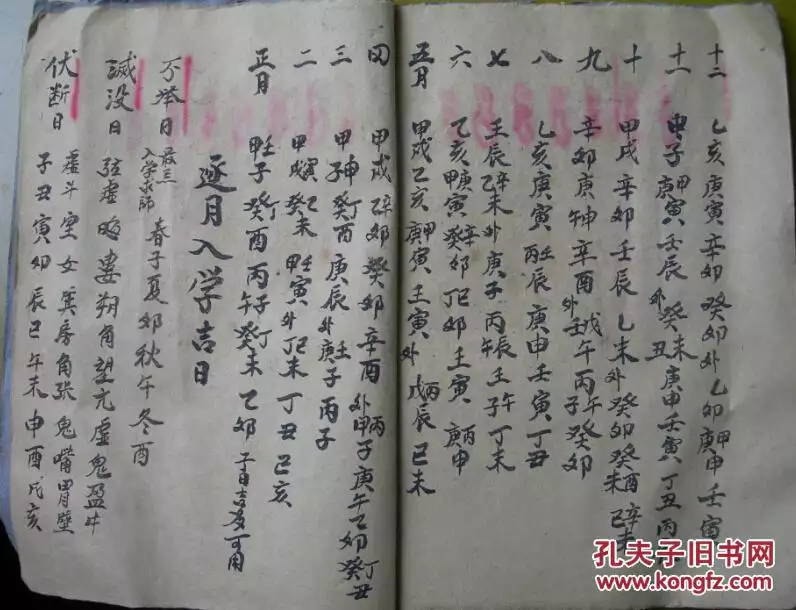 伏断日 子丑寅卯辰巳午未申酉戌亥
虚斗室女箕房角张鬼嘴胃壁
滅没日 弦虚晦娄朔角望亢虚鬼盈牛
不举日 最忌入学求師 春子夏卯秋午冬酉
逐月入学吉日
正月 甲壬子癸丁酉丙午子癸丁未乙卯
二 甲戌寅癸乙未甲壬寅外丁巳未丁丑己亥
三 甲申子癸丁酉庚辰外庚壬子丙子
四 甲戌乙辛卯癸卯辛酉外甲丙子庚午乙卯癸丁丑
五月 甲戌乙亥庚甲寅壬寅外戊丙辰己未
六 乙亥甲庚寅癸辛卯丁巳卯壬寅庚丙申
七 壬辰乙辛未外庚子丙午辰壬子午丁未
八 乙亥庚寅丙壬辰庚申壬寅丁丑
九 辛卯庚午申辛酉外壬戌午丙子午癸卯
十 甲戌辛卯壬辰乙未外癸卯癸未酉己辛未
十一 甲子庚甲寅壬辰外癸丑未庚申壬寅丁丑丙
十二 乙亥庚寅辛卯癸卯外乙卯庚甲申壬寅
孔夫子旧书网
www.kongfz.com